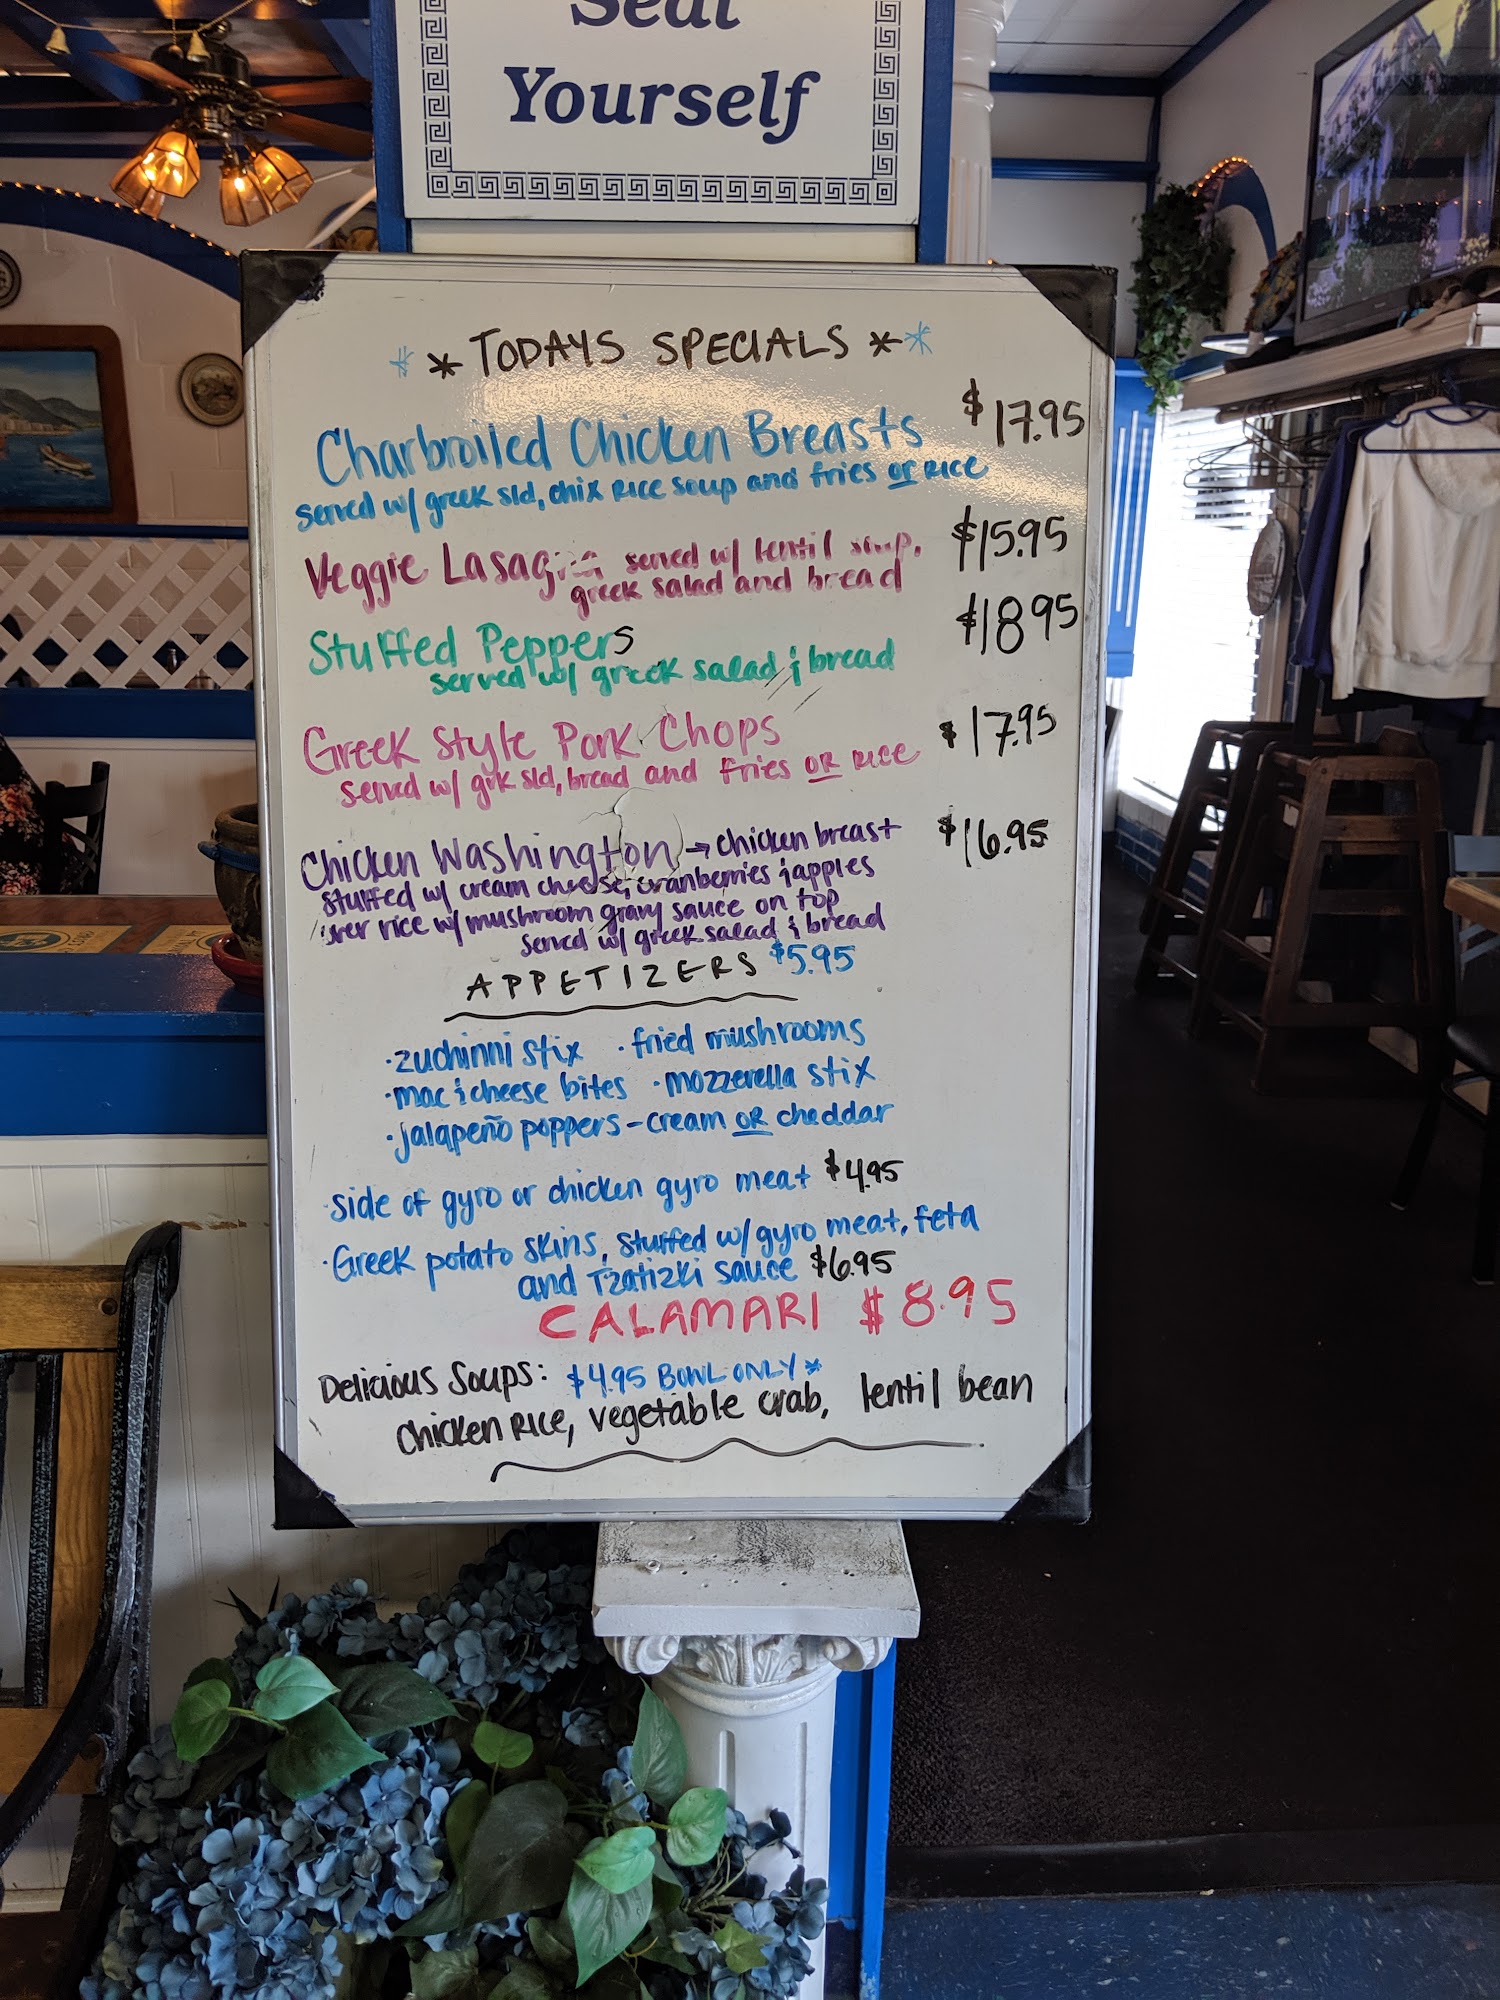 Seat
Yourself
* * TODAYS SPECIALS * *
Charbroiled Chicken Breasts $17.95
served w/ greek sld, chix RICE soup and fries or RICE
Veggie Lasagna served w/ lentil soup, $15.95
greek salad and bread
Stuffed Peppers $18.95
served w/ greek salad & bread
Greek Style Pork Chops $17.95
served w/ grk sld, bread and fries OR RICE
Chicken Washington → chicken breast $16.95
stuffed w/ cream cheese, cranberries & apples
over rice w/ mushroom gravy sauce on top
served w/ greek salad & bread
APPETIZERS $5.95
· zuchinni stix · fried mushrooms
· mac & cheese bites · mozzerella stix
· jalapeño poppers - cream OR cheddar
· side of gyro or chicken gyro meat $4.95
· Greek potato skins, stuffed w/ gyro meat, feta
and Tzatizki sauce $6.95
CALAMARI $8.95
Delicious Soups: $4.95 BOWL ONLY *
chicken RICE, vegetable crab, lentil bean